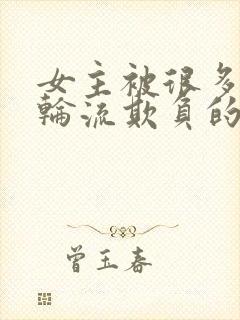 女主被很多
輪流欺負的
曾玉春